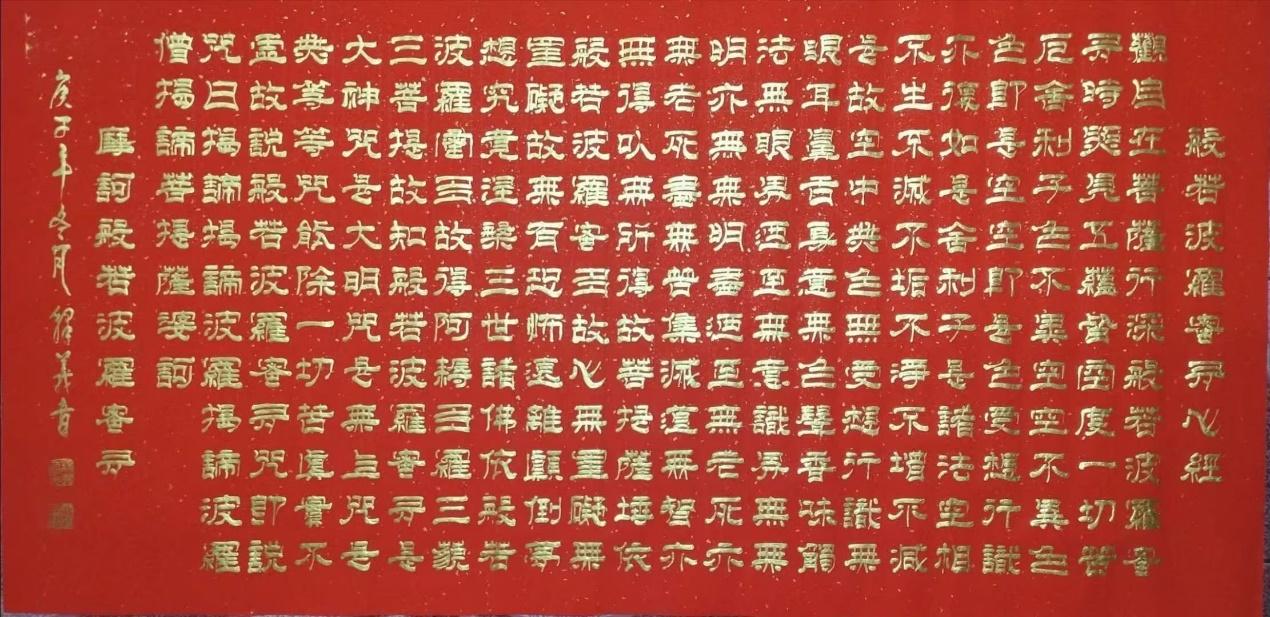 般若波羅密多心經
觀自在菩薩行深般若波羅密
多時照見五蘊皆空度一切苦
厄舍利子色不異空空不異色
色即是空空即是色受想行識
亦復如是舍利子是諸法空相
不生不滅不垢不淨不增不減
是故空中無色無受想行識無
眼耳鼻舌身意無色聲香味觸
法無眼界乃至無意識界無無
明亦無無明盡乃至無老死亦
無老死盡無苦集滅道無智亦
無得以無所得故菩提薩埵依
般若波羅密多故心無罣礙無
罣礙故無有恐怖遠離顛倒夢
想究竟涅槃三世諸佛依般若
波羅密多故得阿耨多羅三藐
三菩提故知般若波羅密多是
大神咒是大明咒是無上咒是
無等等咒能除一切苦真實不
虛故說般若波羅密多咒即說
咒曰揭諦揭諦波羅揭諦波羅
僧揭諦菩提薩婆訶
摩訶般若波羅密多
庚子年冬月